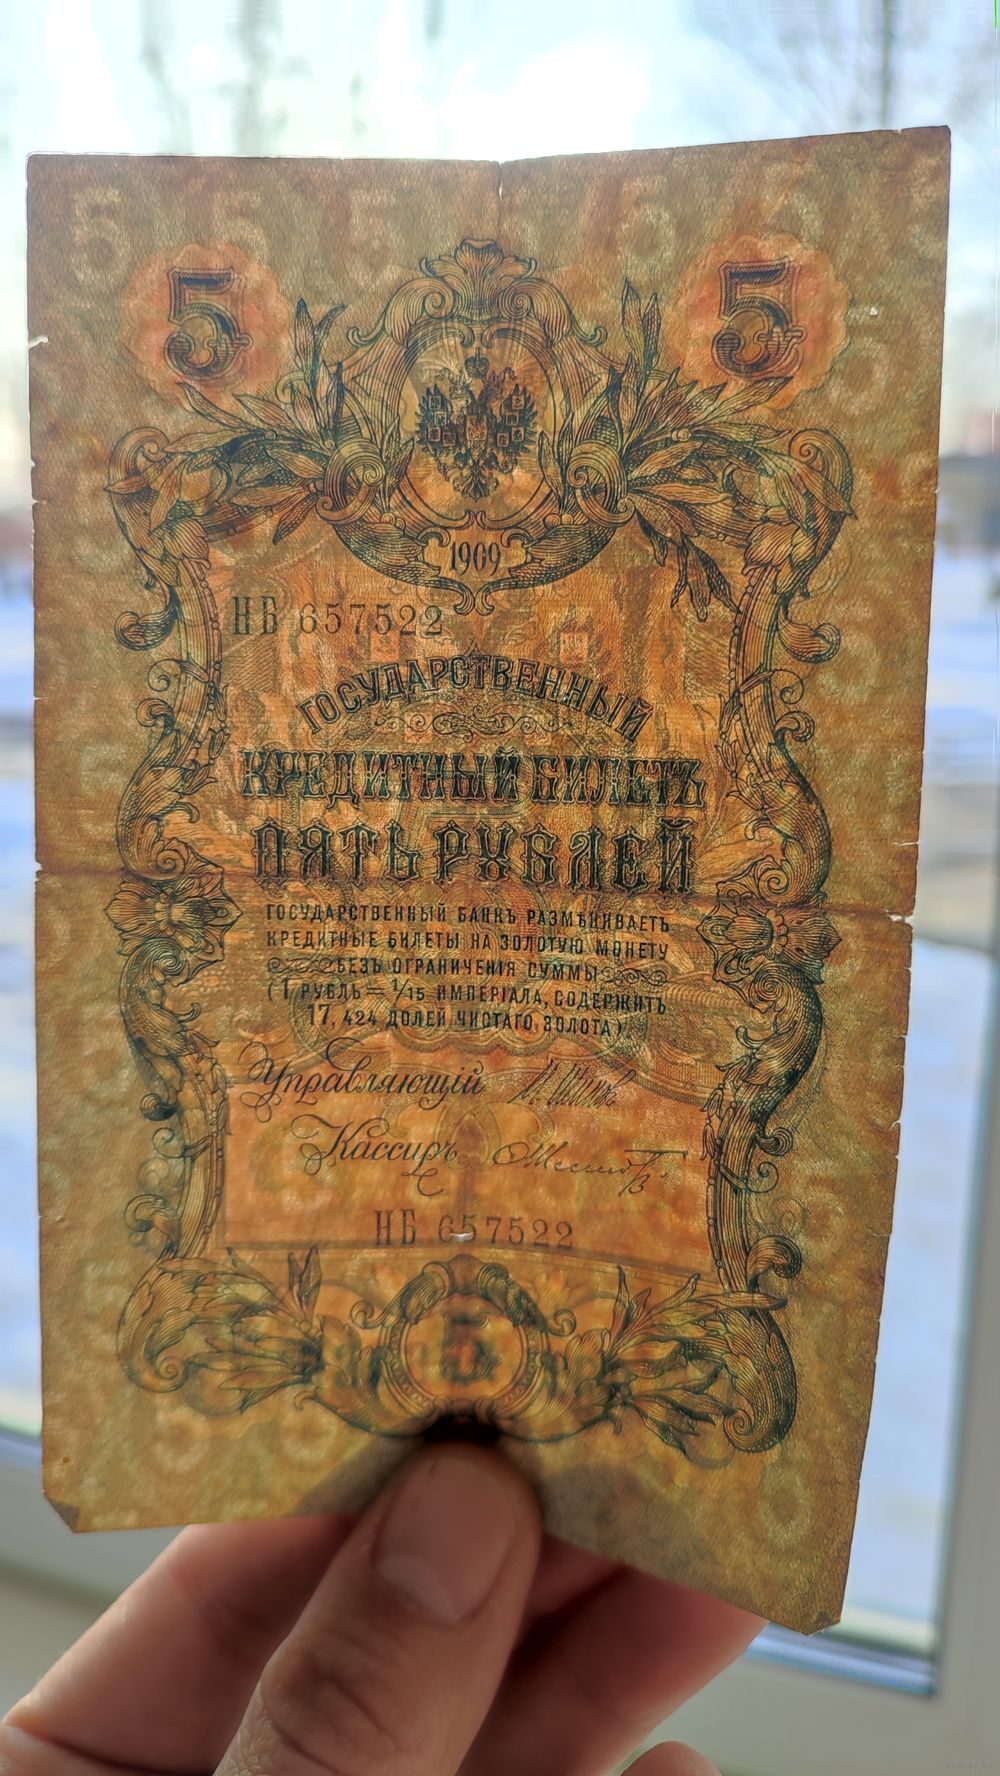 5 5
1909
НБ 657522
ГОСУДАРСТВЕННЫЙ
КРЕДИТНЫЙ БИЛЕТЪ
ПЯТЬ РУБЛЕЙ
ГОСУДАРСТВЕННЫЙ БАНКЪ РАЗМѢНИВАЕТЪ
КРЕДИТНЫЕ БИЛЕТЫ НА ЗОЛОТУЮ МОНЕТУ
БЕЗЪ ОГРАНИЧЕНІЯ СУММЫ
(1 РУБЛЬ = 1/15 ИМПЕРІАЛА, СОДЕРЖИТЪ
17,424 ДОЛЕЙ ЧИСТАГО ЗОЛОТА)
Управляющій
Кассиръ
НБ 657522
5